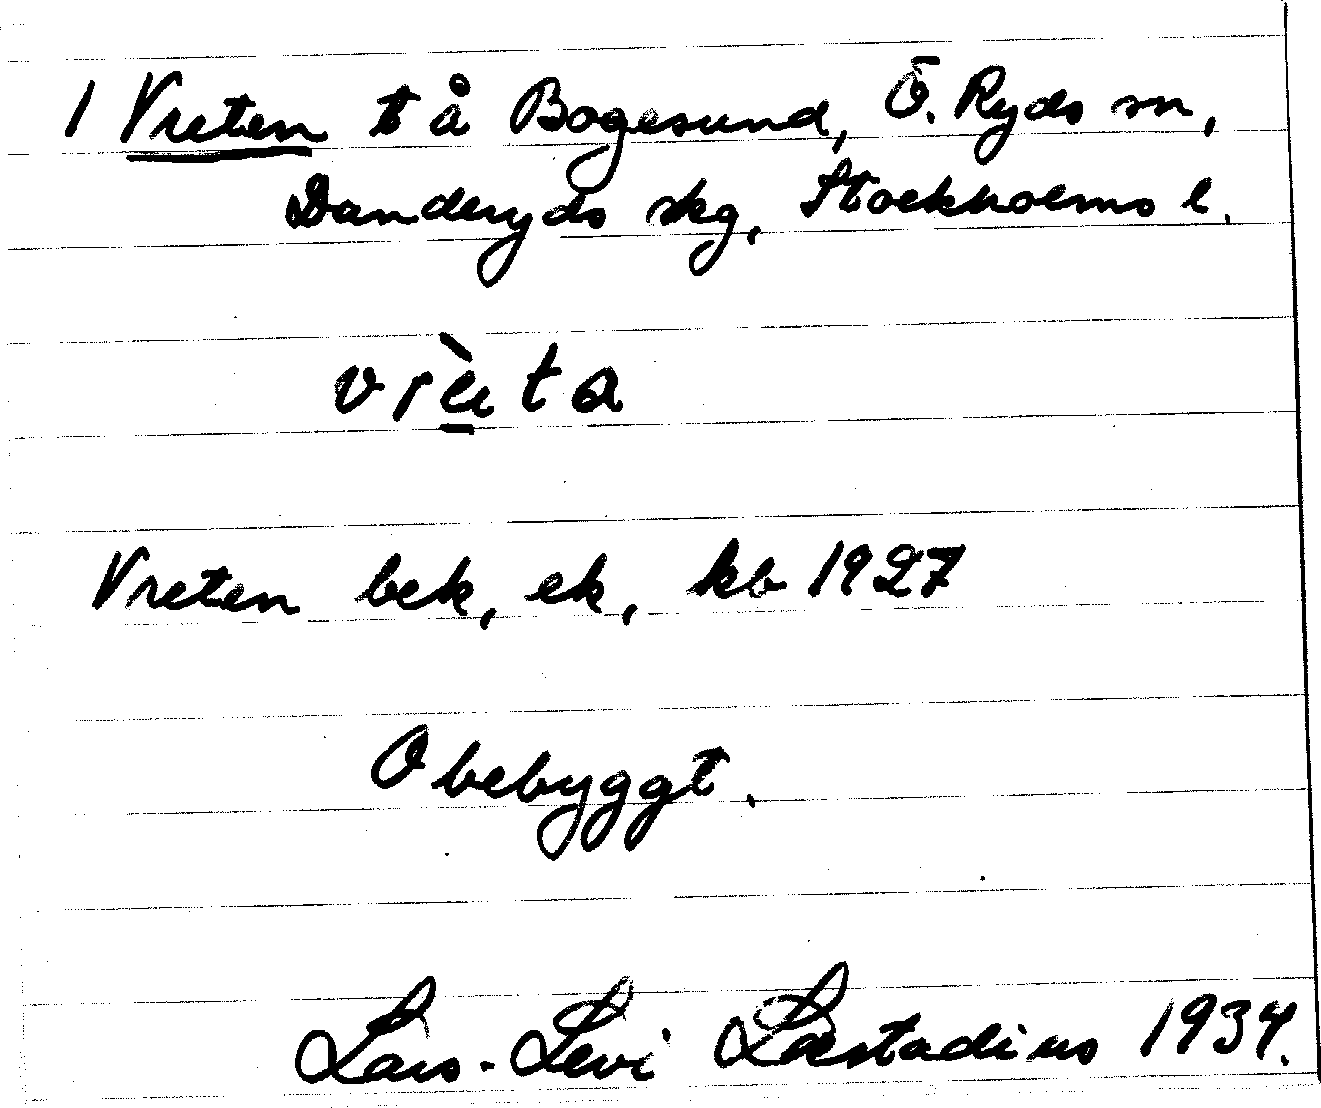 1 Vreten t å Bogesund, Ö. Ryds sn,
Danderyds skg, Stockholms l.
vrèta
Vreten bek, ek, kb 1927
Obebyggt.
Lars-Levi Læstadius 1934.